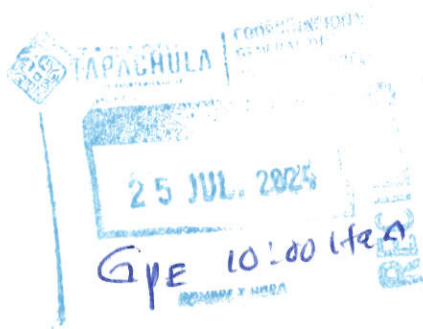 TAPACHULA
COORDINACION
GENERAL DE
25 JUL. 2024
GyE 10:00 Hrs
NOMBRE Y HORA
RECIBI